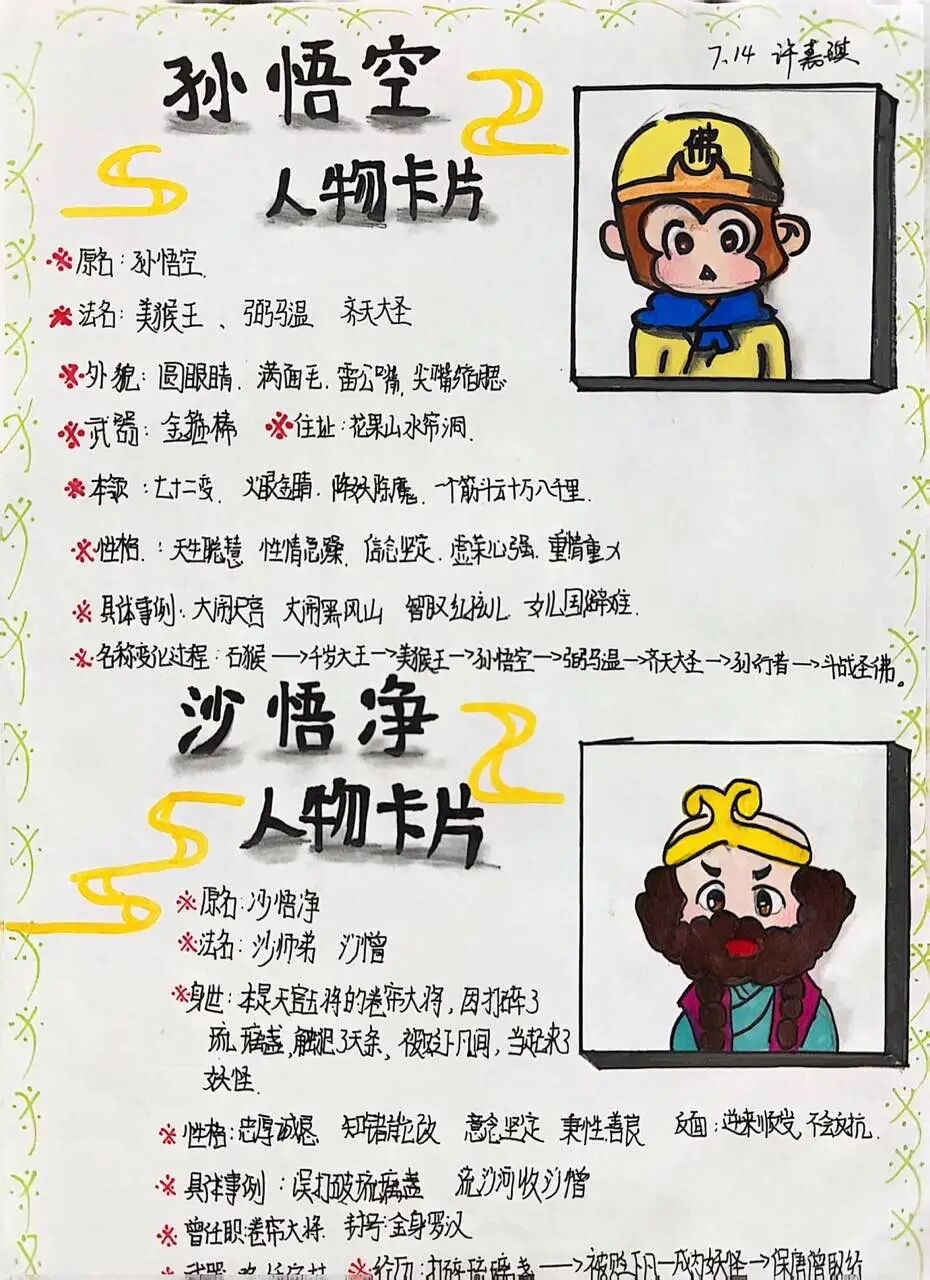 7.14 许嘉琪
孙悟空
人物卡片
佛
※原名:孙悟空.
※法名:美猴王、弼马温 齐天大圣
※外貌:圆眼睛.满面毛.雷公嘴,尖嘴缩腮
※武器:金箍棒 ※住址:花果山水帘洞.
※本领:七十二变.火眼金睛.降妖除魔.一个筋斗云十万八千里.
※性格.:天生聪慧 性情急躁.信念坚定.虚荣心强.重情重义
※具体事例:大闹天宫 大闹黑风山 智取红孩儿 女儿国解难.
※名称变化过程:石猴→千岁大王→美猴王→孙悟空→弼马温→齐天大圣→孙行者→斗战圣佛。
沙悟净
人物卡片
※原名:沙悟净
※法名:沙师弟 沙僧
※身世:本是天宫玉将的卷帘大将,因打碎了
琉璃盏,触犯了天条,被贬下凡间,当起来了
妖怪.
※性格:忠厚诚恳 知错能改 意念坚定 秉性善良 反面:逆来顺受,不会反抗.
※具体事例:误打破琉璃盏 流沙河收沙僧
※曾任职:卷帘大将 封号:金身罗汉
※武器: ※经历:打碎琉璃盏→被贬下凡→成为妖怪→保唐僧取经